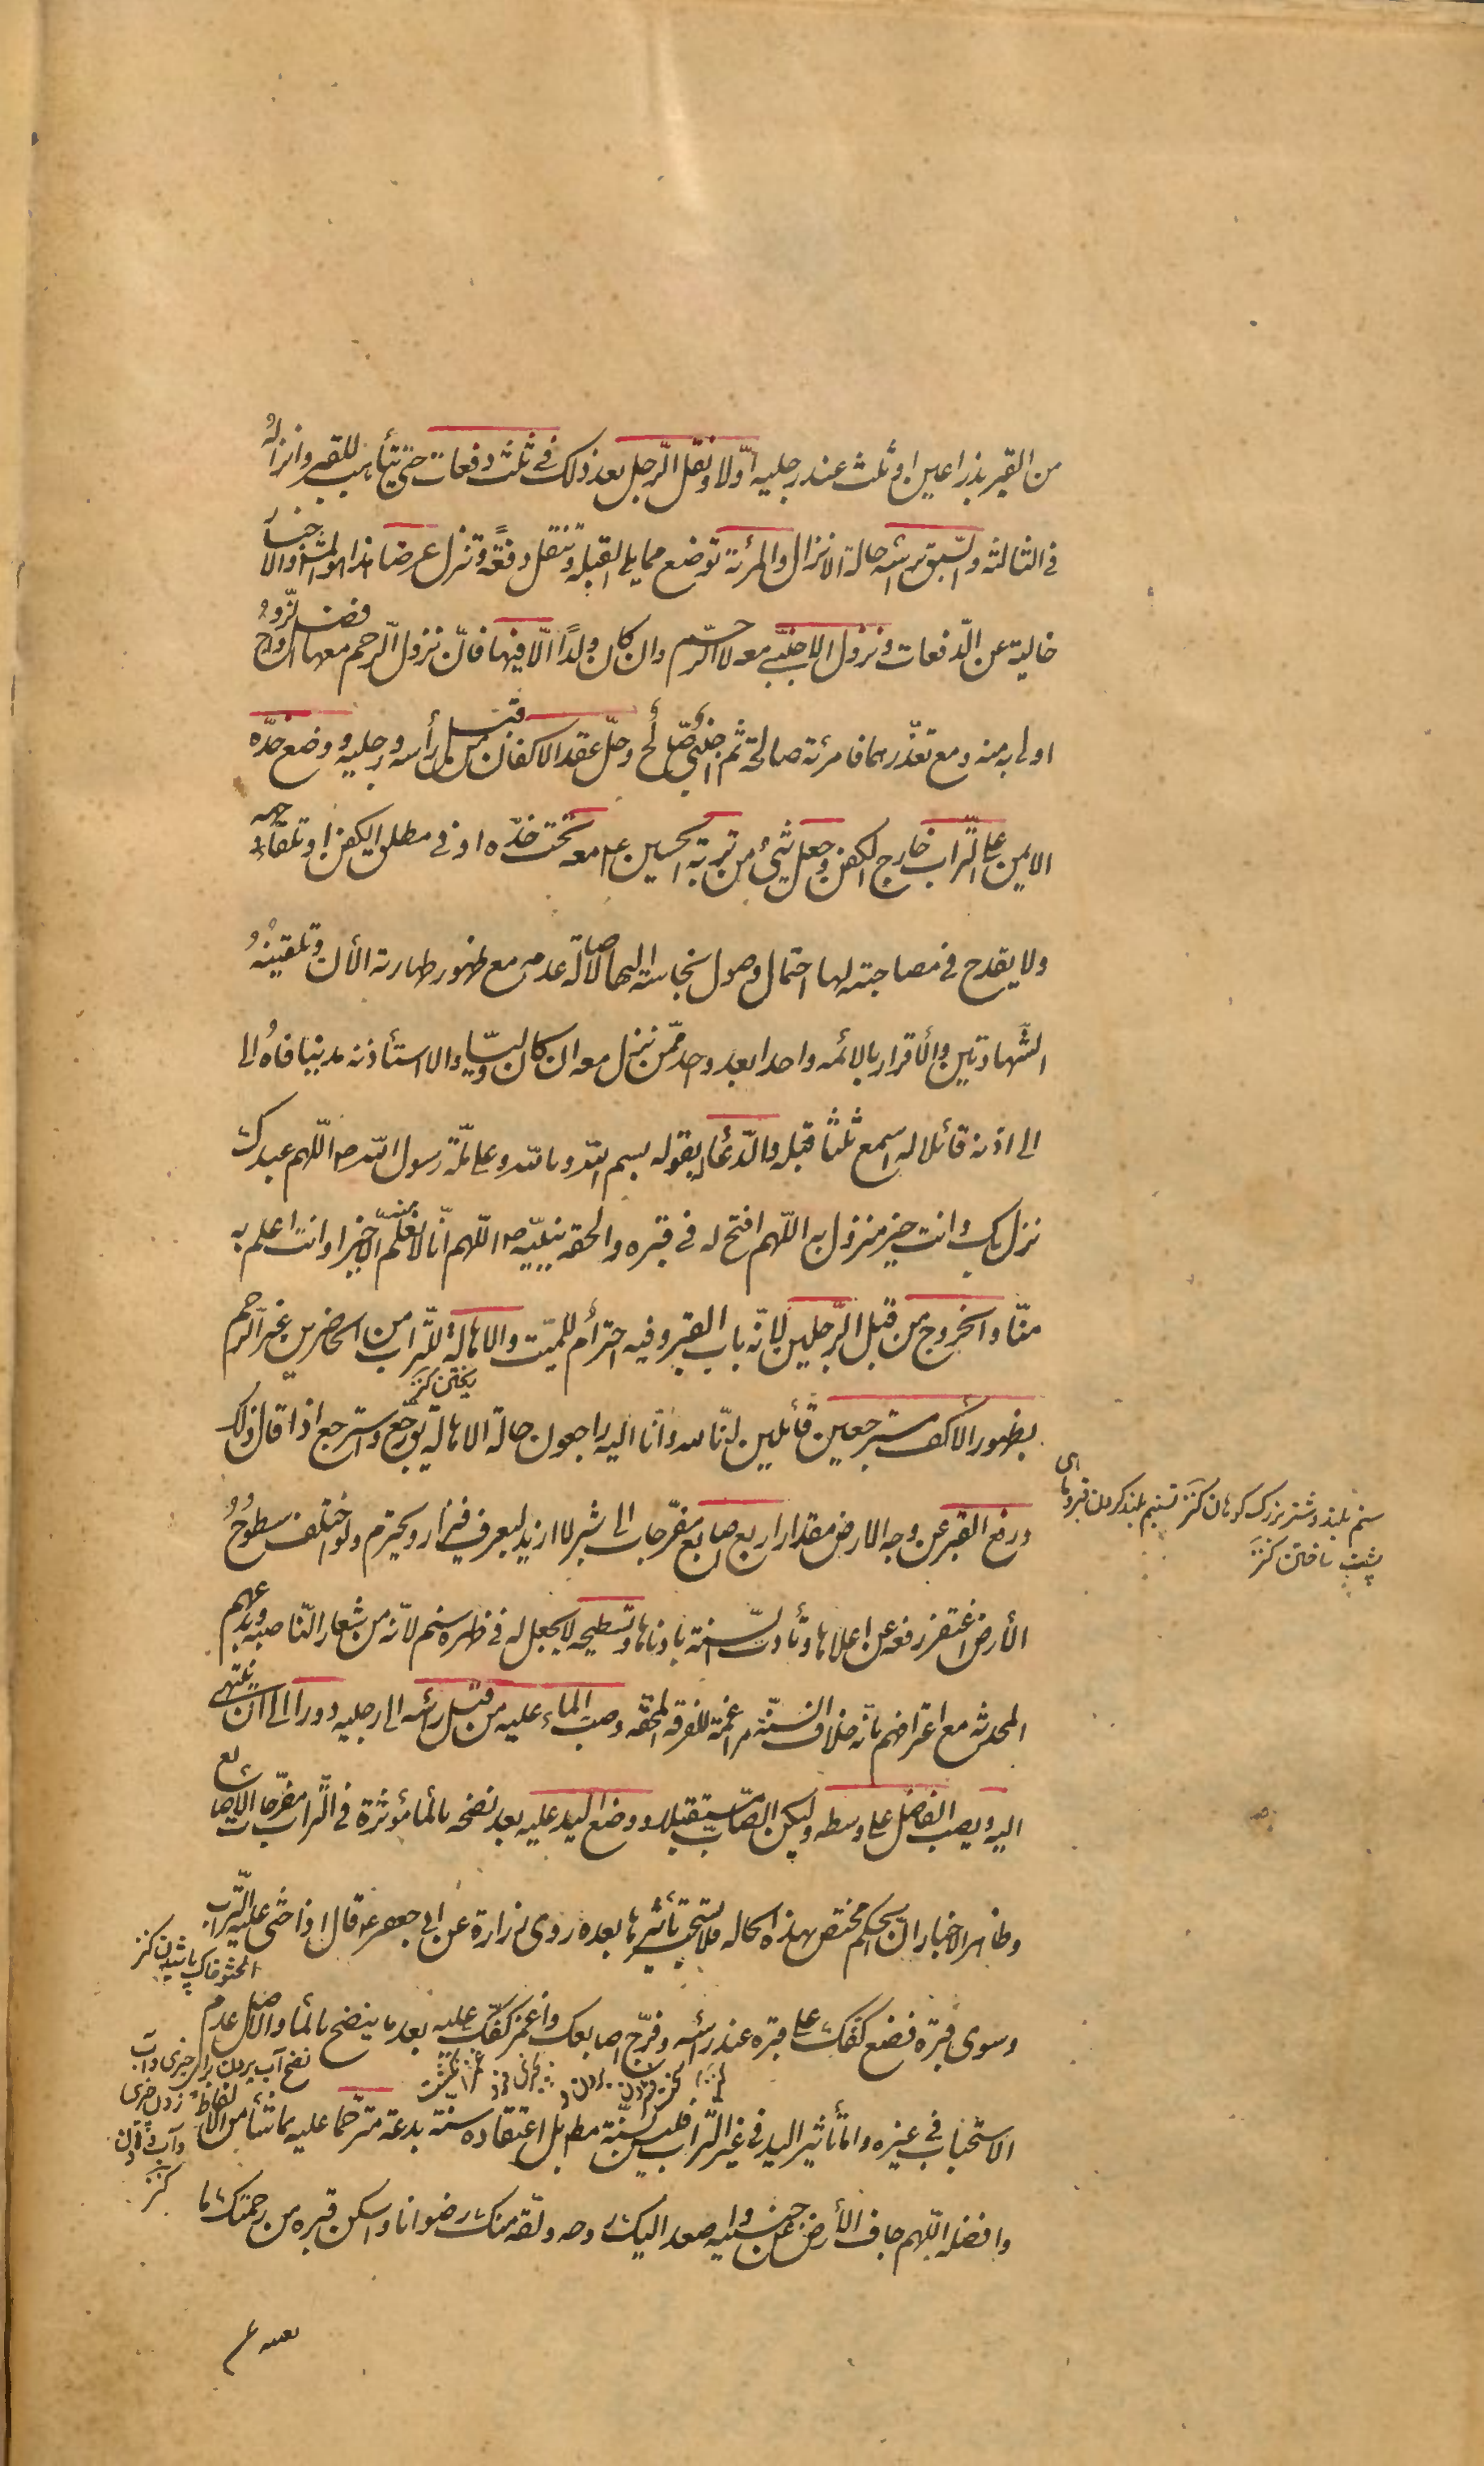 من القبر بذراعين او ثلث عند رجليه اوّلا ونقل الرّجل بعد ذلك في ثلث دفعات حتى يتأهب للقبر وانزاله
في الثالثه والسّبق برأسه حالة الانزال والمرئة توضع مما يلي القبلة وتنقل دفعةً وتنزل عرضا هذا هو المشهور والاخبار
خالية عن الدّفعات ونزول الاجنبيّ معه لا الرّحم وان كان ولدًا الّا فيها فانّ نزول الرّحم معها افضل والزّوج
اولى به منه ومع تعذّرهما فامرئة صالحة ثم اجنبيّ صالح وحلّ عقد الاكفان من قبل رأسه ورجليه ووضع خدّه
الايمن على التّراب خارج الكفن وجعل شئ من تربة الحسين ع معه تحت خدّه او في مطلق الكفن او تلقاء وجهه
ولا يقدح في مصاحبته لها احتمال وصول نجاسته اليها لاصالة عدمه مع ظهور طهارته الأن وتلقينهُ
الشّهادتين والأقرار بالائمه واحدا بعد واحد ممّن نزل معه ان كان وليّا والا استأذنه مدنيا فاهُ الى
الى اذنه قائلا له اسمع ثلثا قبله والدّعاء له بقوله بسم اللّه وباللّه وعلى ملّة رسول اللّه ص اللّهم عبدك
نزل بك وانت خير منزول به اللّهم افتح له في قبره والحقه بنبيّه ص اللّهم انّا لا نعلم منه الّا خيرا وانت اعلم به
منّا والخروج من قبل الرّجلين لانّه باب القبر وفيه احترام للميّت والاهالة للتّراب من الحاضرين غير الرّحم
بظهور الأكف مسترجعين قائلين انّا للّه وانّا اليه راجعون حالة الاهالة يق رجّع واسترجع اذا قال ذلك
ورفع القبر عن وجه الارض مقدار اربع اصابع مفرّجات الى شبر لا ازيد ليعرف فيزار ويحترم ولو اختلف سطوحُ
الأرض اغتفر رفعه عن اعلاها وتأدت السّنة بادناها وتسطيحه لا يجعل له في ظهره سنم لانّه من شعار النّاصبه وبدعهم
المحدثه مع اعترافهم بانّه خلاف السّنّة مراغمة للفرقة المحقّه وصبّ الماء عليه من قبل رأسه الى رجليه دورا الى ان ينتهى
اليه ويصب الفاضل على وسطه وليكن الصّابّ مستقبلا ووضع اليد عليه بعد نضحه بالماء مؤثرة في التّراب مفرّجات الاصابع
وظاهر الاخبار انّ الحكم مختص بهذه الحاله فلا يستحب تأثيرها بعده روى زرارة عن ابي جعفر ع قال اذا حثى عليه التّراب
وسوى قبرهُ فضع كفك على قبره عند رأسه وفرّج اصابعك واغمز كفّك عليه بعد ما ينضح بالماء والاصل عدم
الاستحباب في غيره وامّا تأثير اليد في غير التّراب فليس بسنّة مط بل اعتقاده سنّة بدعة مترحّما عليه بما شاء من الالفاظ
وافضله اللّهم جاف الأرض عن جنبيه واصعد اليك روحه ولقّه منك رضوانا واسكن قبره من رحمتك ما
سنم بلند وشتر بزرك كوهان كنز تسنيم بلند كردن قبر وماهى
پشت ساختن كنز
ريختن كنز
الحثو خاك پاشيدن كنز
نضح آب بردن براى چيزى وآب
كنز